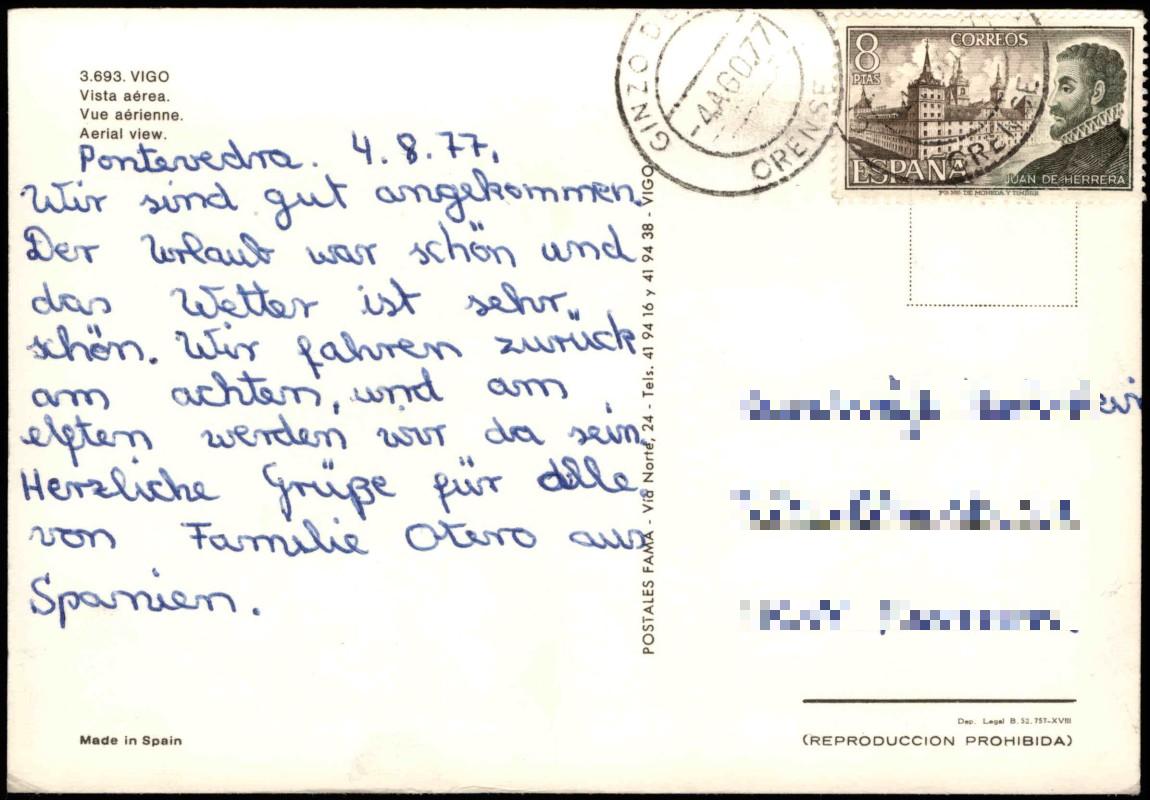 3.693. VIGO
Vista aérea.
Vue aérienne.
Aerial view.
Pontevedra. 4.8.77.
Wir sind gut angekommen.
Der Urlaub war schön und
das Wetter ist sehr
schön. Wir fahren zurück
am achten, und am
elften werden wir da sein.
Herzliche Grüße für alle
von Familie Otero aus
Spanien.
Made in Spain
POSTALES FAMA - Vía Norte, 24 - Tels. 41 94 16 y 41 94 38 - VIGO
GINZO D
-4 AGO.77
ORENSE
8
PTAS
CORREOS
ESPAÑA
JUAN DE HERRERA
ORENSE
Dep. Legal B. 52.757-XVIII
(REPRODUCCION PROHIBIDA)